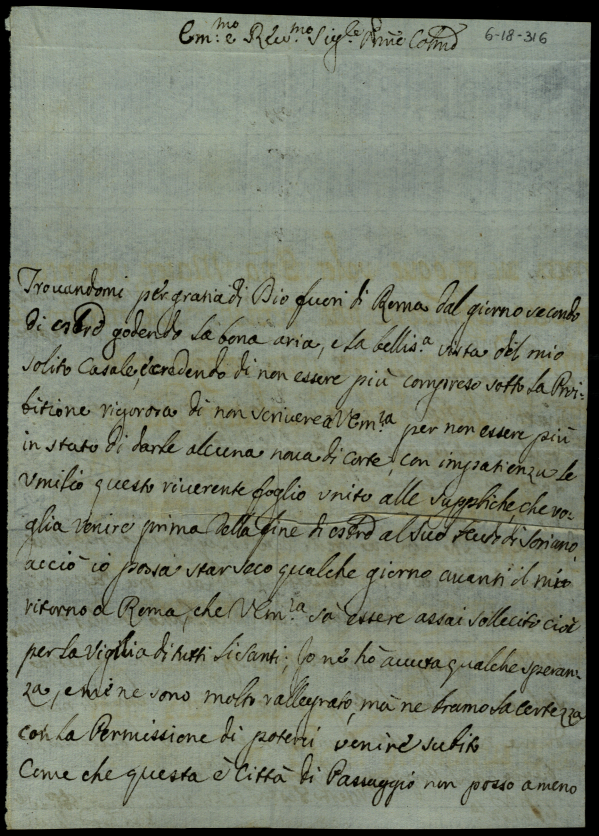 Em.mo e Rev.mo Sig.re P̃ñe Colmo
6-18-316
Trovandomi per gratia di Dio fuori di Roma dal giorno secondo
di godendo la bona aria, e la bellis.a vista del mio
solito Casale, e credendo di non essere più compreso sotto la Proi-
bitione rigorosa di non scrivere a VEm.za per non essere più
in stato di darle alcuna nova di corte, con impatienza le
Umilio questo riverente foglio unito alle suppliche, che vo-
glia venire prima della fine di al suo feudo di Soriano,
acciò io possa star seco qualche giorno avanti il mio
ritorno a Roma, che VEm.za sà essere assai sollecito cioè
per la Vigilia di tutti li Santi; Io nè hò avuta qualche speran-
za, e mi ne sono molto rallegrato, mà ne bramo la certezza
con la Permissione di poterci venire subito
Come che questa è Città di Passaggio non posso a meno